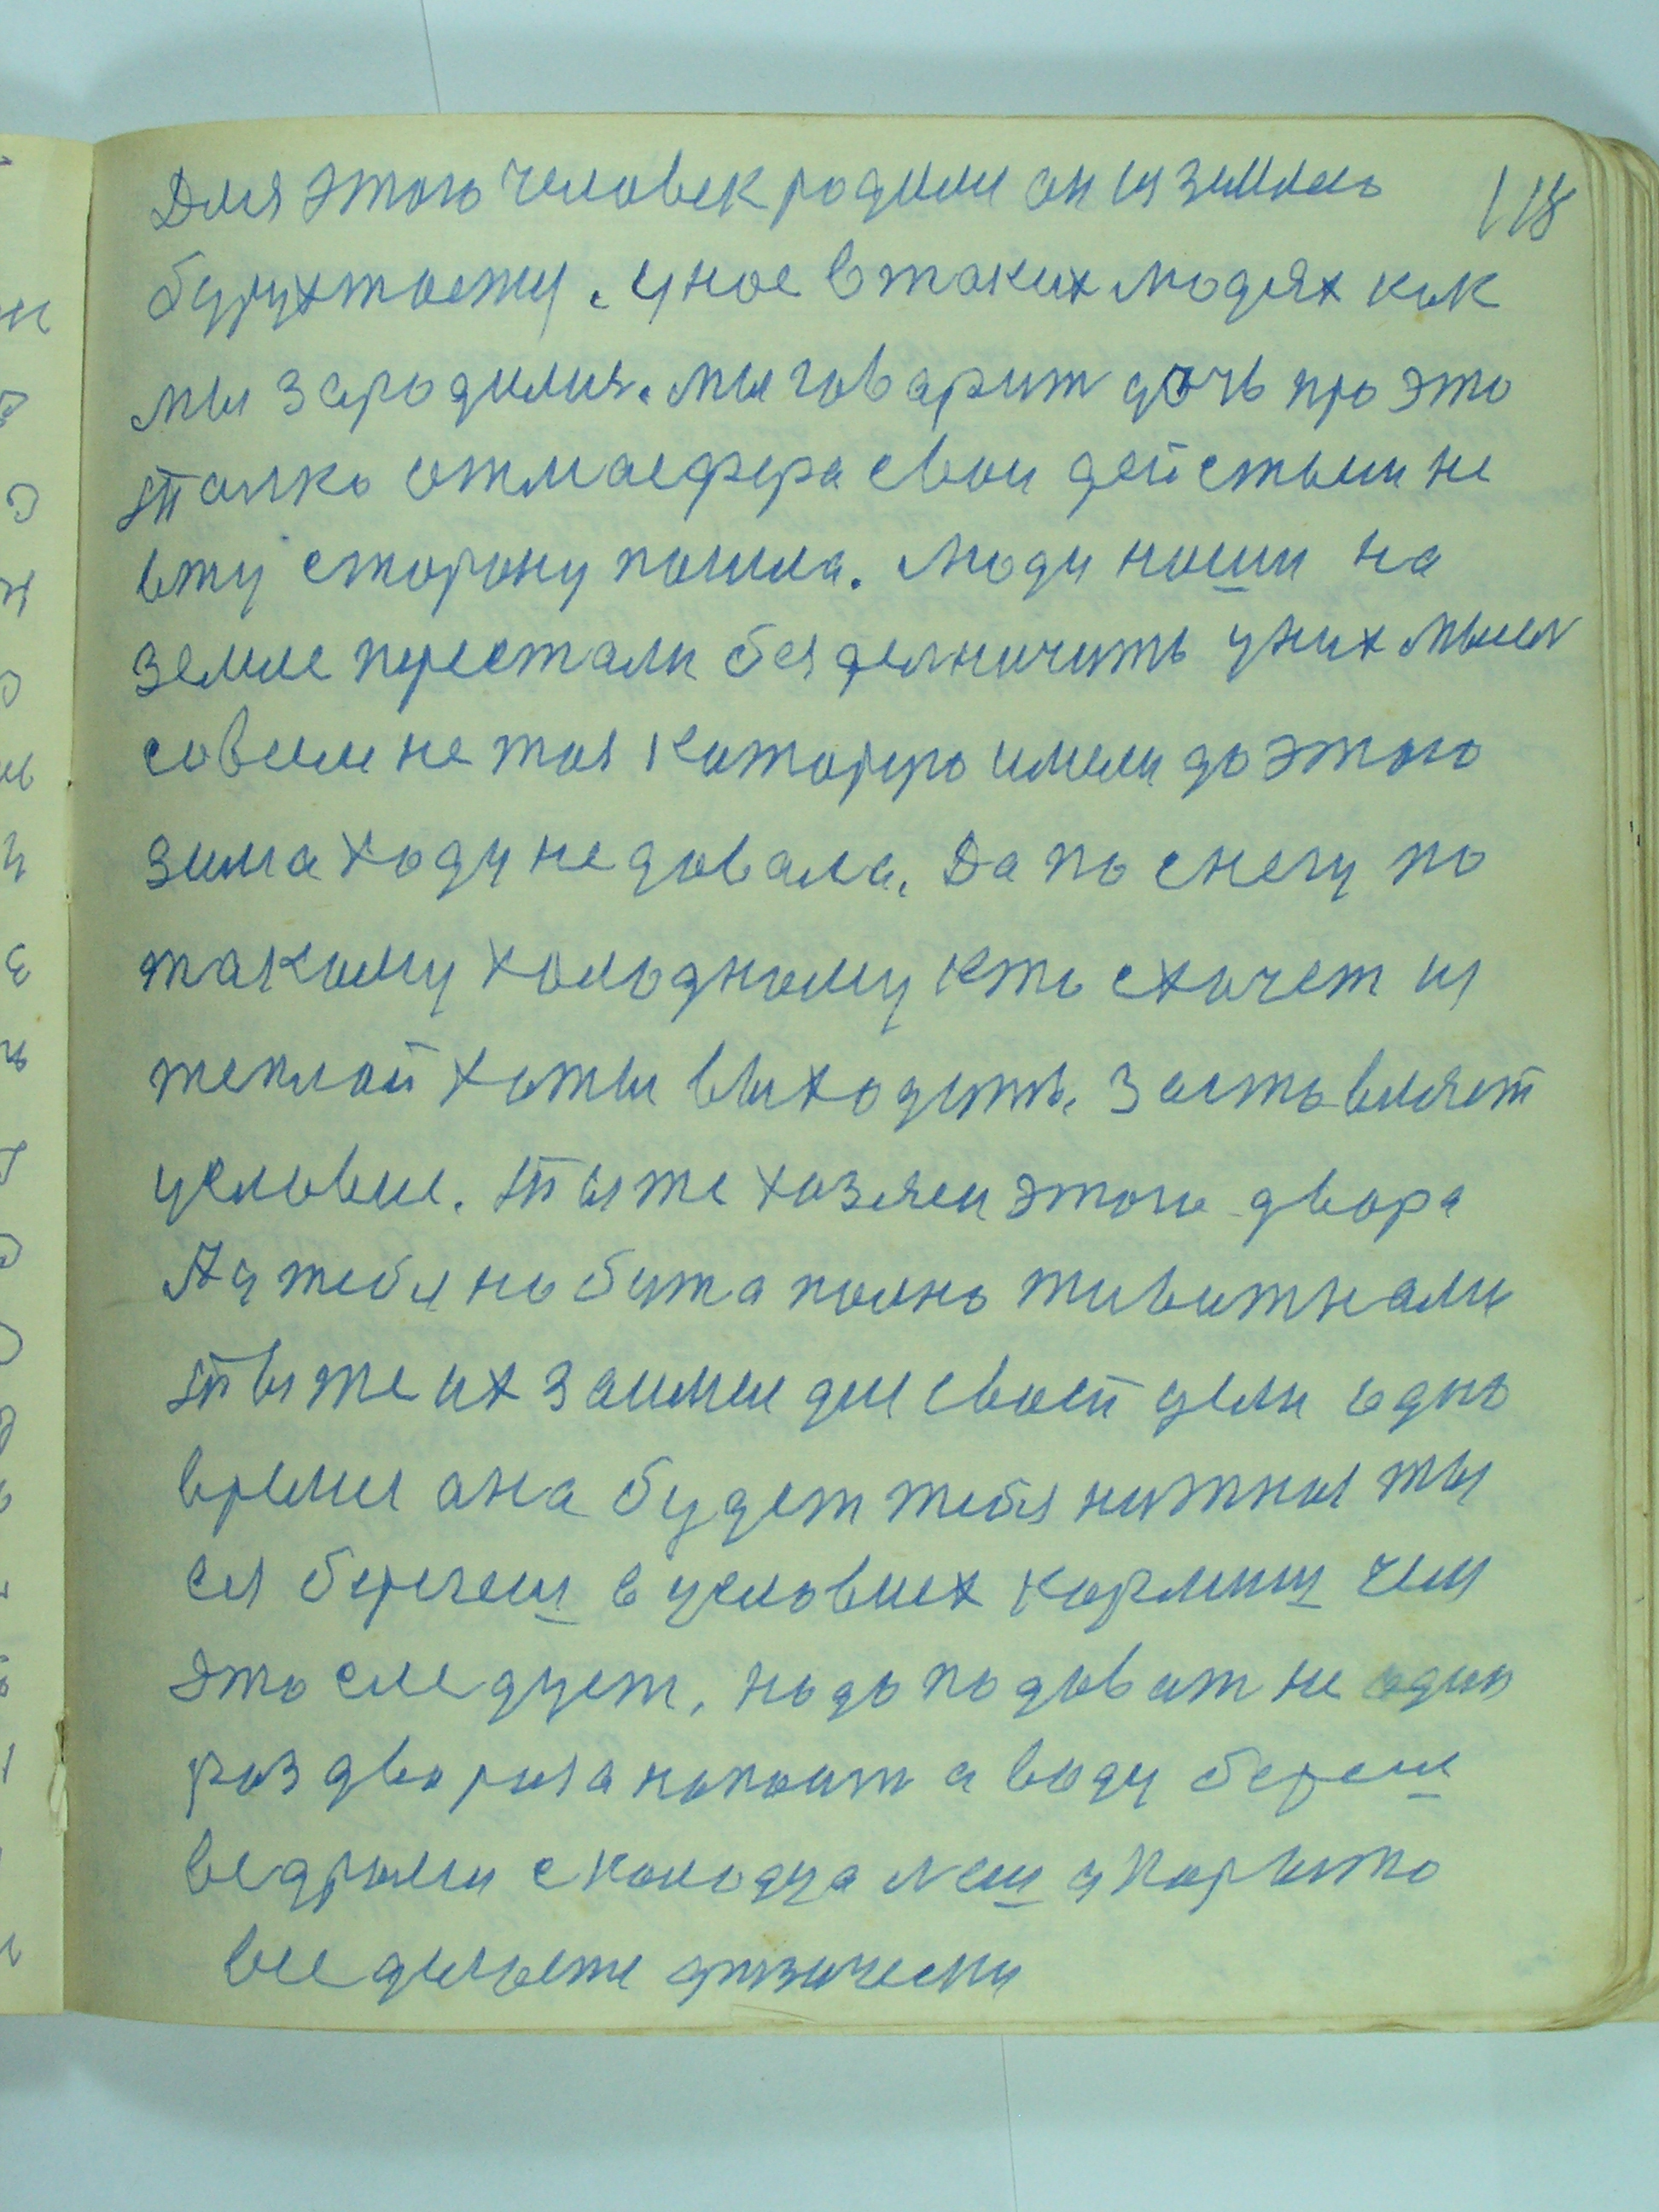 118
Для этого человек родили он из землею
бурухтаежу. У нас в таких людях как
мы зародился. мы говарит дочь про это
Толко отмаефера свои действии не
вту сторону пошла. Люди наши на
земле перестали безделничить у них мысл
совсем не тоя которую имели до этого
зима ходу не довала. Да по снегу по
такому холодному кто схочет из
теплой хаты выходить. Заставляет
условие. Ты же хозяен этого двора
А у тебя на бута полно животнами
Ты же их заимел для своей цели одно
время ана будет тебя нужныя ты
ея беречеш в условиех кормиш чем
это следует. надо подоват не один
раз два раза напоит а воду береш
ведрами с колодца леш у корыто
все дилаете физически